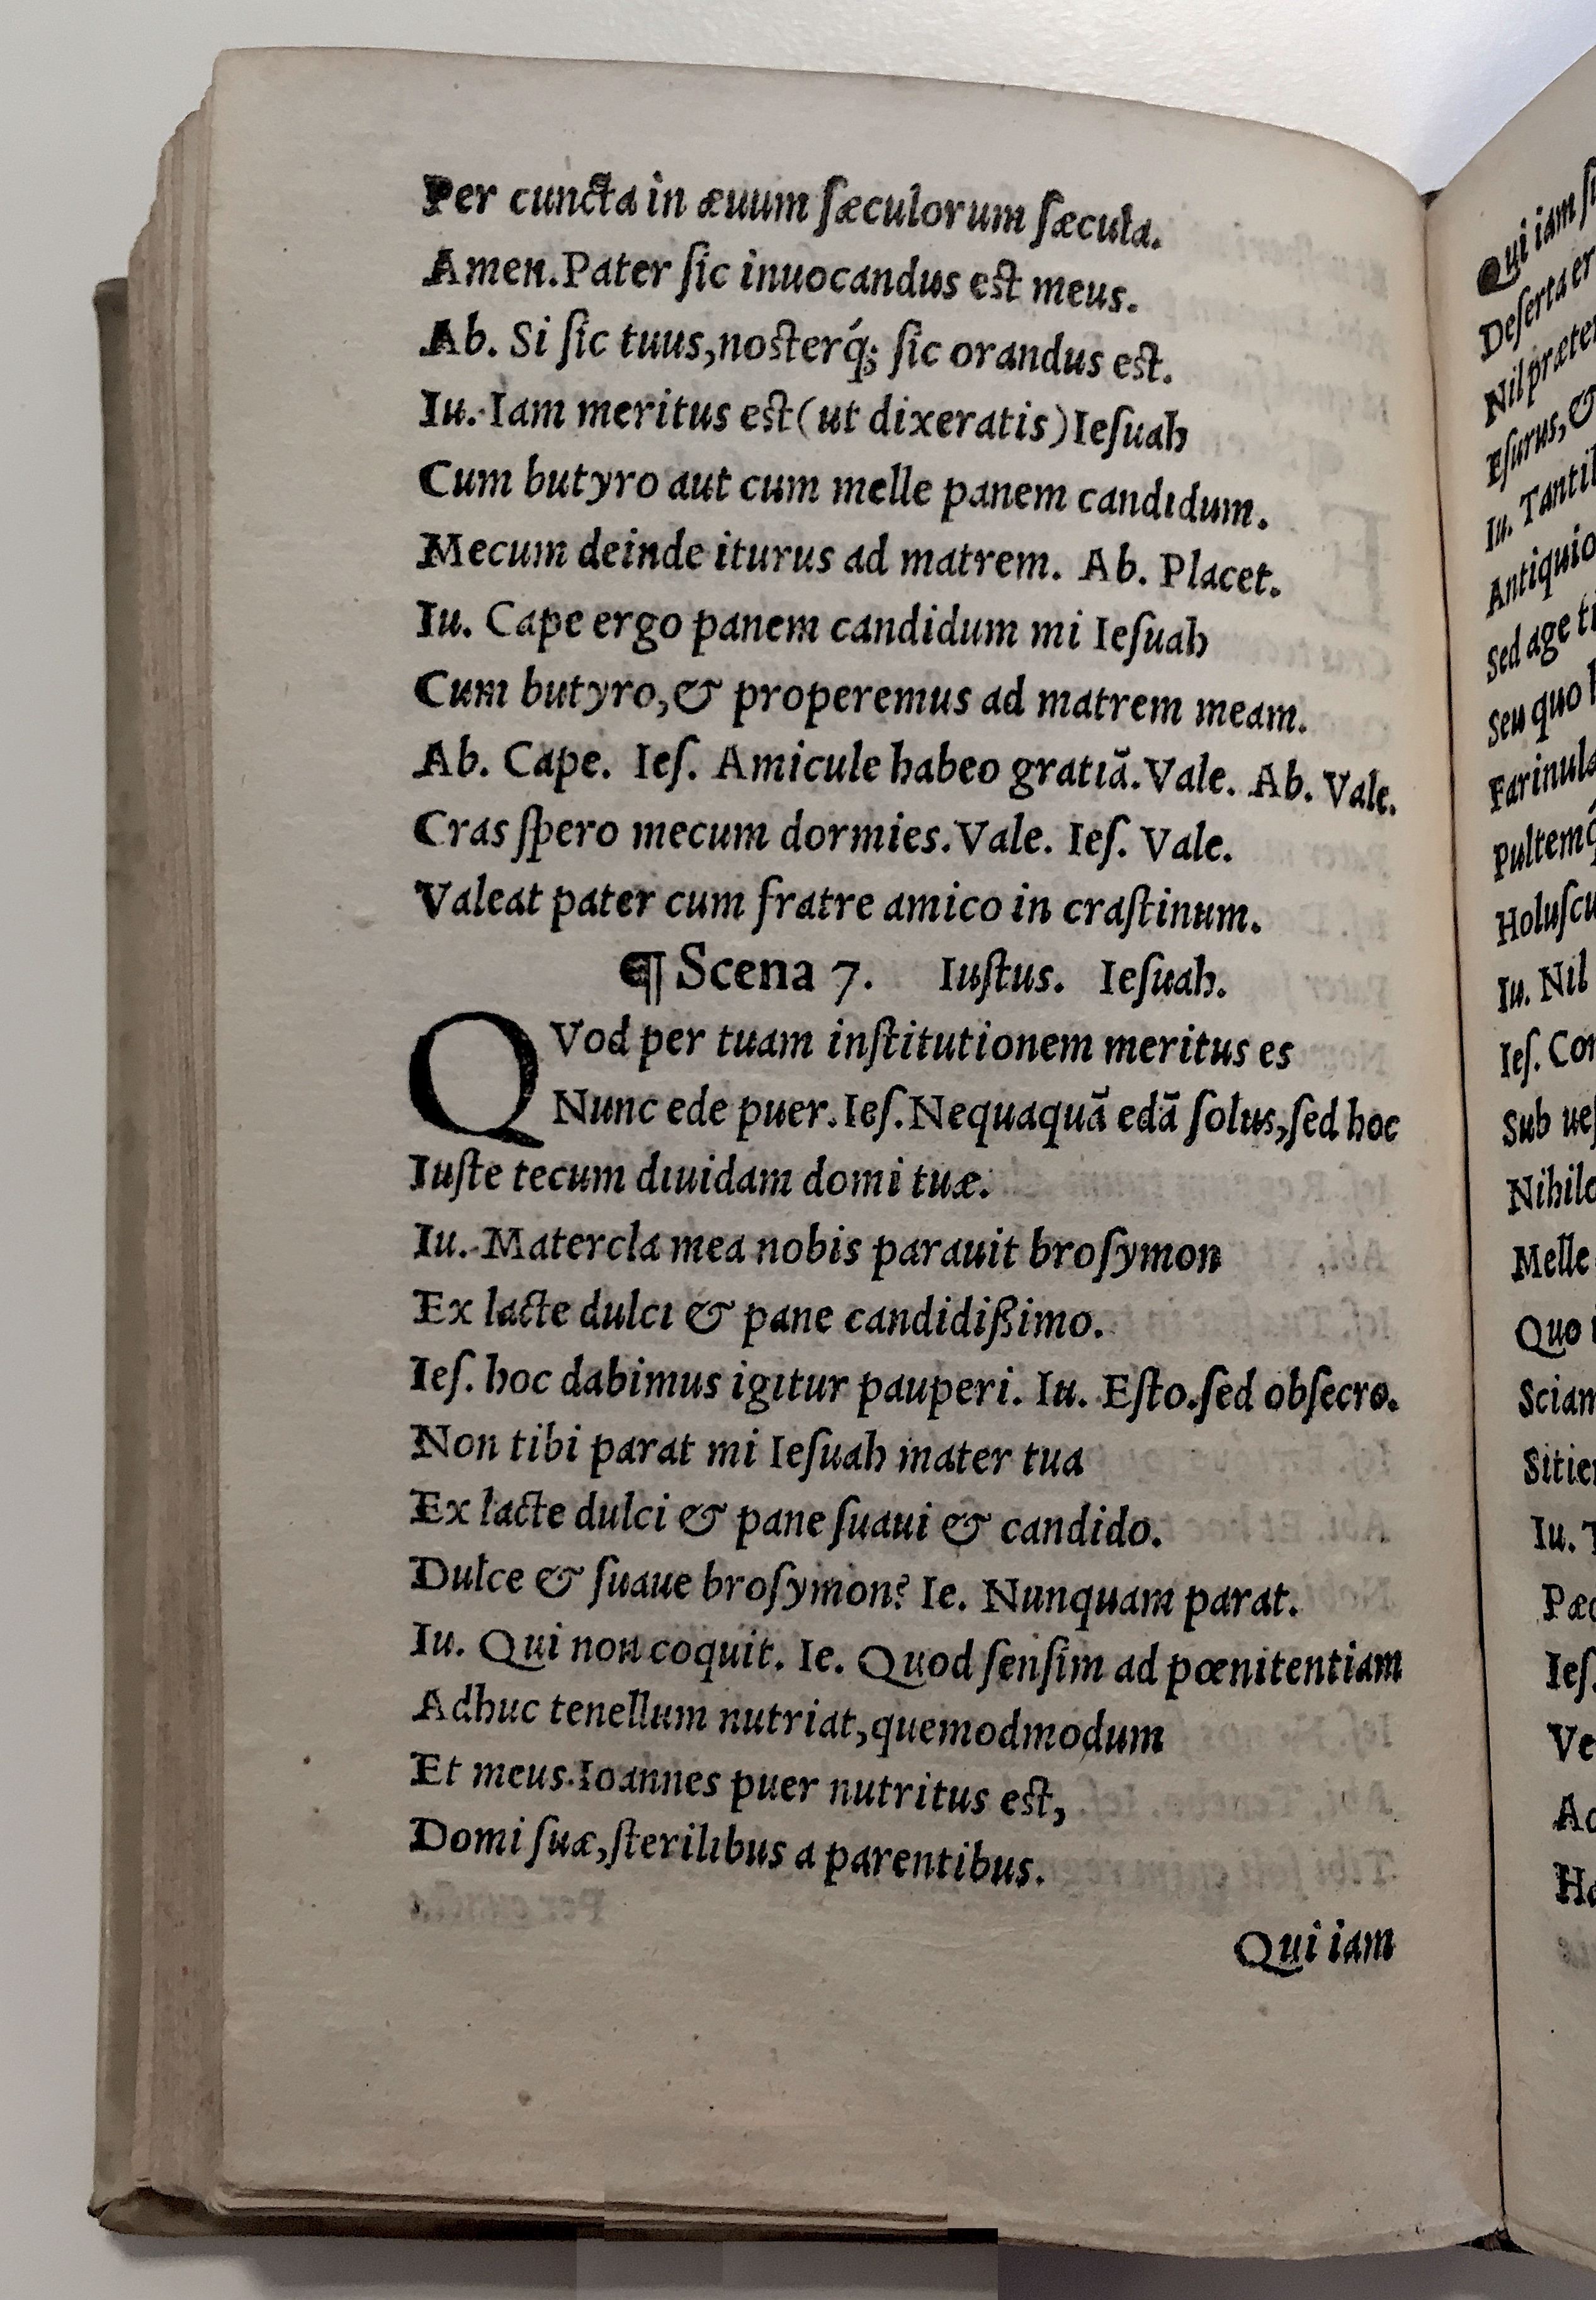 Per cuncta in æuum ſæculorum ſæcula.
Amen. Pater ſic inuocandus est meus.
Ab. Si ſic tuus, nosterq́; ſic orandus est.
Iu. Iam meritus est (ut dixeratis) Ieſuah
Cum butyro aut cum melle panem candidum.
Mecum deinde iturus ad matrem. Ab. Placet.
Iu. Cape ergo panem candidum mi Ieſuah
Cum butyro, & properemus ad matrem meam.
Ab. Cape. Ieſ. Amicule habeo gratiā. Vale. Ab. Vale.
Cras ſpero mecum dormies. Vale. Ieſ. Vale.
Valeat pater cum fratre amico in craſtinum.
¶ Scena 7. Iuſtus. Ieſuah.
QVod per tuam inſtitutionem meritus es
Nunc ede puer. Ieſ. Nequaquā edā ſolus, ſed hoc
Iuſte tecum diuidam domi tuæ.
Iu. Matercla mea nobis parauit broſymon
Ex lacte dulci & pane candidiſsimo.
Ieſ. hoc dabimus igitur pauperi. Iu. Eſto. ſed obſecro.
Non tibi parat mi Ieſuah mater tua
Ex lacte dulci & pane ſuaui & candido.
Dulce & ſuaue broſymon? Ie. Nunquam parat.
Iu. Qui non coquit. Ie. Quod ſenſim ad pœnitentiam
Adhuc tenellum nutriat, quemodmodum
Et meus Ioannes puer nutritus est,
Domi ſuæ, ſterilibus a parentibus.
Qui iam
Qui iam
Deſerta
Nil præter
Eſurus, &
Iu.
Antiquio
Sed age
Seu quo
Farinula
Pultemq́
Holuſcu
Iu. Nil
Ieſ. Con
Sub
Nihilo
Melle
Quo
Sciam
Sitie
Iu.
Pæ
Ieſ.
Ve